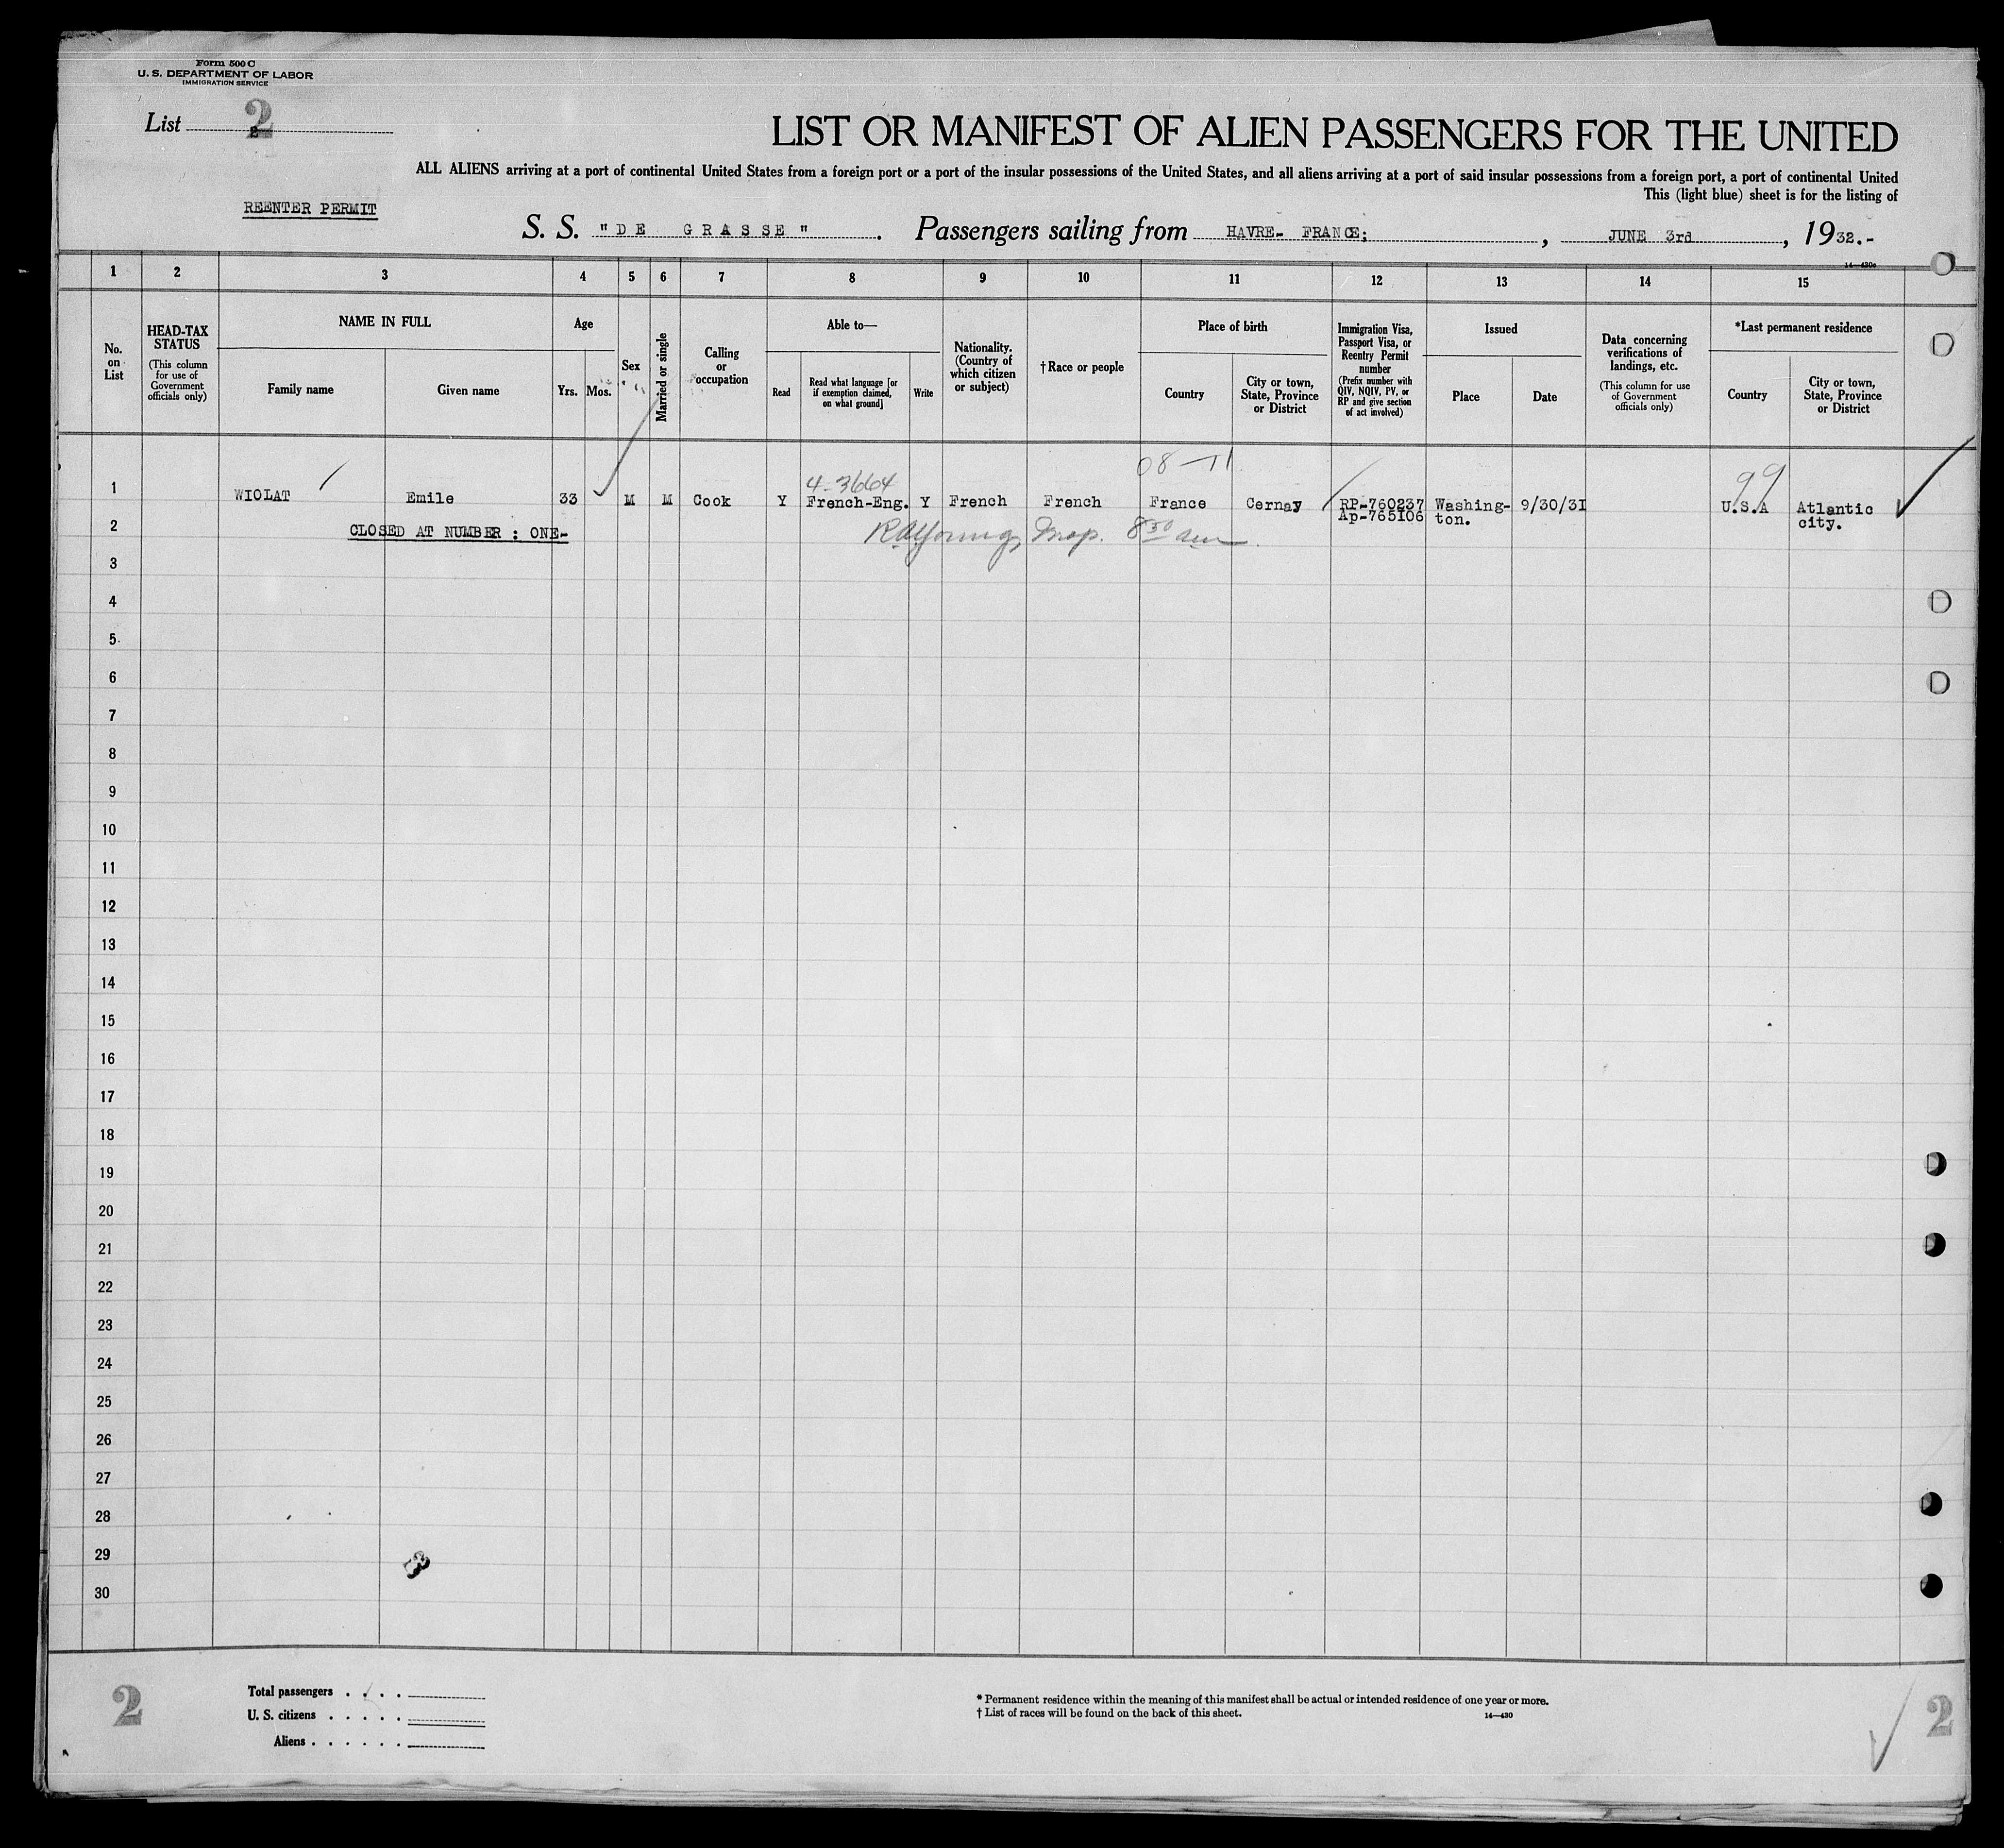 Form 500 C
U. S. DEPARTMENT OF LABOR
IMMIGRATION SERVICE
List 2
2
LIST OR MANIFEST OF ALIEN PASSENGERS FOR THE UNITED
ALL ALIENS arriving at a port of continental United States from a foreign port or a port of the insular possessions of the United States, and all aliens arriving at a port of said insular possessions from a foreign port, a port of continental United
This (light blue) sheet is for the listing of
REENTER PERMIT
S. S. "DE GRASSE". Passengers sailing from HAVRE- FRANCE; , JUNE 3rd , 1932.-
14—430c
1 2 3 4 5 6 7 8 9 10 11 12 13 14 15
No. on List
HEAD-TAX STATUS
(This column for use of Government officials only)
NAME IN FULL
Family name
Given name
Age
Yrs.
Mos.
Sex
Married or single
Calling or occupation
Able to—
Read
Read what language [or if exemption claimed, on what ground]
Write
Nationality. (Country of which citizen or subject)
†Race or people
Place of birth
Country
City or town, State, Province or District
Immigration Visa, Passport Visa, or Reentry Permit number
(Prefix number with QIV, NQIV, PV, or RP and give section of act involved)
Issued
Place
Date
Data concerning verifications of landings, etc.
(This column for use of Government officials only)
*Last permanent residence
Country
City or town, State, Province or District
4-3664 08-11 99
1 WIOLAT Emile 33 M M Cook Y French-Eng. Y French French France Cernay RP-760237 Washing- 9/30/31 U.S.A Atlantic
Ap-765106 ton. city.
2 CLOSED AT NUMBER : ONE- Insp. 8 30 am
3
4
5
6
7
8
9
10
11
12
13
14
15
16
17
18
19
20
21
22
23
24
25
26
27
28
29
30
2
Total passengers . . . .
U. S. citizens . . . . .
Aliens . . . . . .
* Permanent residence within the meaning of this manifest shall be actual or intended residence of one year or more.
† List of races will be found on the back of this sheet.
14—430
2